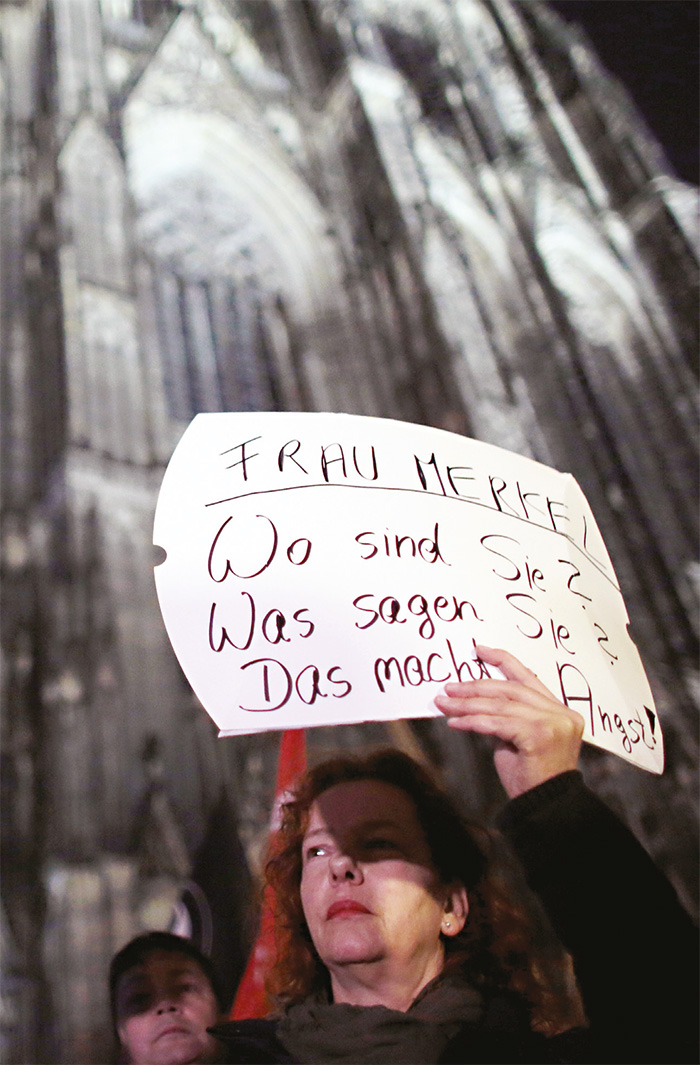 FRAU MERKEL
Wo sind Sie?
Was sagen Sie?
Das macht Angst!